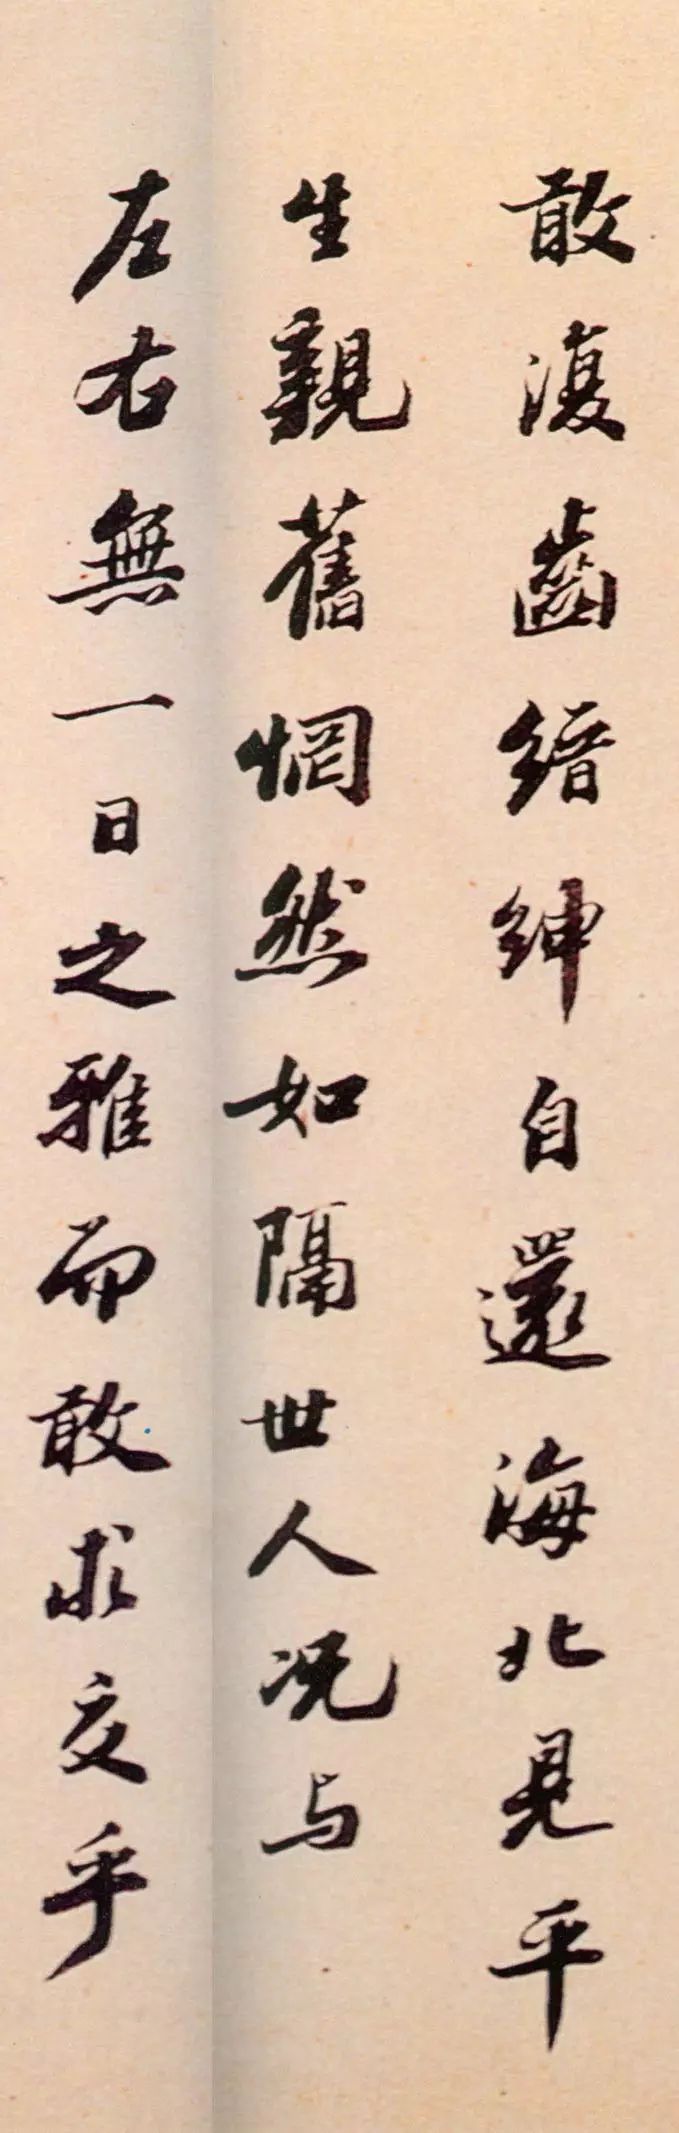 敢復齒縉紳自還海北見平
生親舊惘然如隔世人况与
左右無一日之雅而敢求交乎